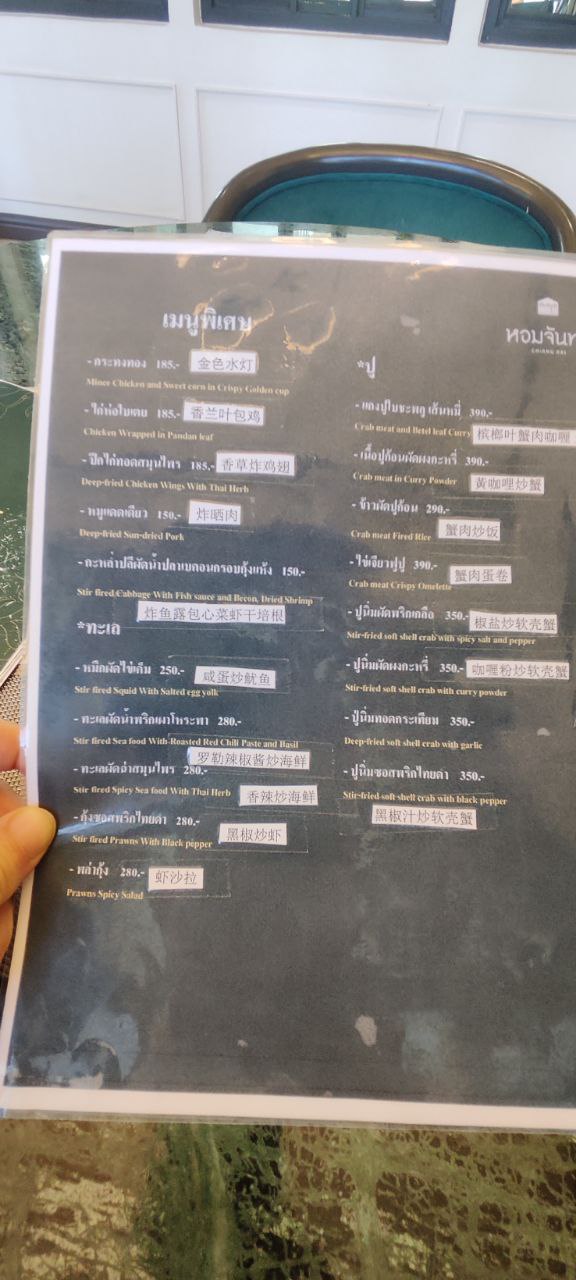 เมนูพิเศษ
- กระทงทอง 185.- 金色水灯
Mince Chicken and Sweet corn in Crispy Golden cup
- ไก่ห่อใบเตย 185.- 香兰叶包鸡
Chicken Wrapped in Pandan leaf
- ปีกไก่ทอดสมุนไพร 185.- 香草炸鸡翅
Deep-fried Chicken Wings With Thai Herb
- หมูแดดเดียว 150.- 炸晒肉
Deep-fried Sun-dried Pork
- กะหล่ำปลีผัดน้ำปลาเบคอนกรอบกุ้งแห้ง 150.-
Stir fired Cabbage With Fish sauce and Becon, Dried Shrimp
炸鱼露包心菜虾干培根
*ทะเล
- หมึกผัดไข่เค็ม 250.- 咸蛋炒鱿鱼
Stir fired Squid With Salted egg yolk
- ทะเลผัดน้ำพริกเผาโหระพา 280.-
Stir fired Sea food With Roasted Red Chili Paste and Basil
罗勒辣椒酱炒海鲜
- ทะเลผัดฉ่าสมุนไพร 280.-
Stir fired Spicy Sea food With Thai Herb 香辣炒海鲜
- กุ้งซอสพริกไทยดำ 280.-
Stir fired Prawns With Black pepper 黑椒炒虾
- พล่ากุ้ง 280.- 虾沙拉
Prawns Spicy Salad
หอมจันท
CHIANG RAI
*ปู
- แกงปูใบชะพลู เส้นหมี่ 390.-
Crab meat and Betel leaf Curry 槟榔叶蟹肉咖喱
- เนื้อปูก้อนผัดผงกะหรี่ 390.-
Crab meat in Curry Powder 黄咖哩炒蟹
- ข้าวผัดปูก้อน 290.-
Crab meat Fired Rice 蟹肉炒饭
- ไข่เจียวฟูปู 390.-
Crab meat Crispy Omelette 蟹肉蛋卷
- ปูนิ่มผัดพริกเกลือ 350.- 椒盐炒软壳蟹
Stir-fried soft shell crab with spicy salt and pepper
- ปูนิ่มผัดผงกะหรี่ 350.- 咖喱粉炒软壳蟹
Stir-fried soft shell crab with curry powder
- ปูนิ่มทอดกระเทียม 350.-
Deep-fried soft shell crab with garlic
- ปูนิ่มซอสพริกไทยดำ 350.-
Stir-fried soft shell crab with black pepper
黑椒汁炒软壳蟹